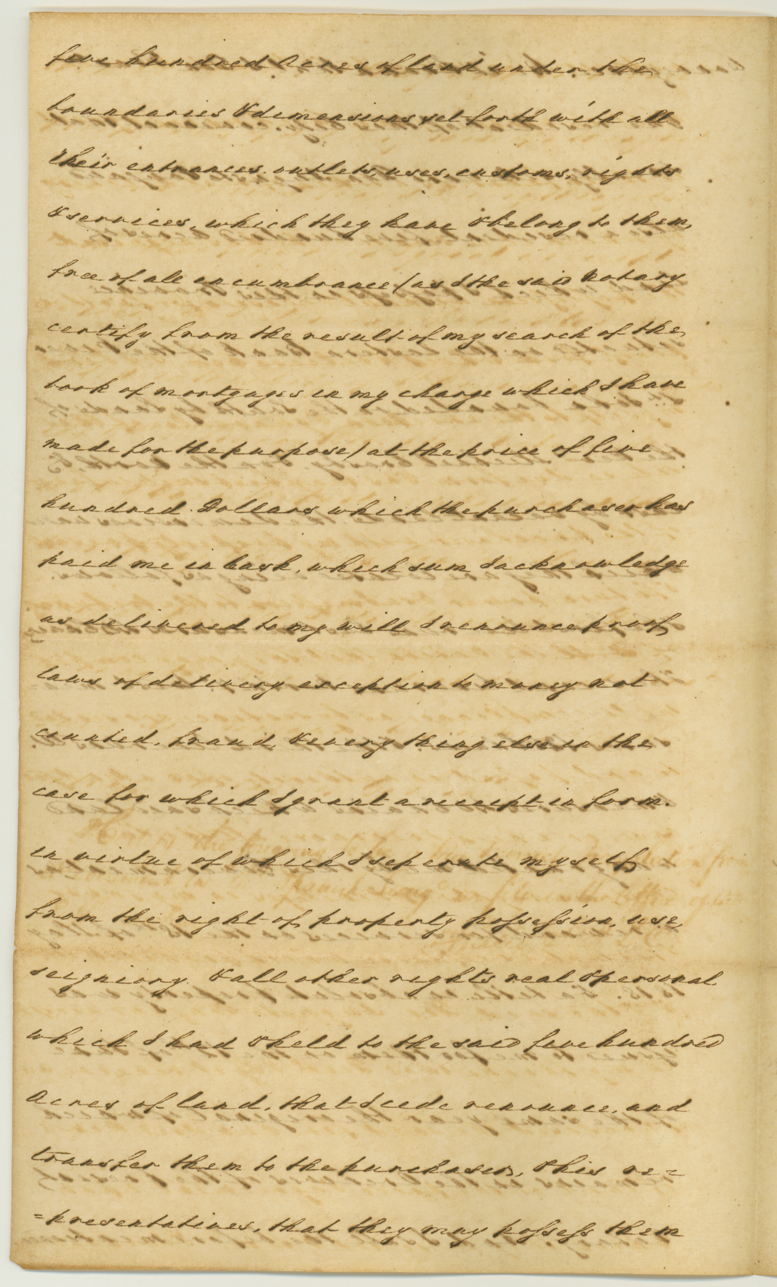 five hundred Acres of land under the
boundaries & dimensions set forth with all
their entrances, outlets, uses, customs, rights
& services, which they have & belong to them,
free of all incumbrance (as I the said Notary
certify from the result of my search of the
book of mortgages in my charge which I have
made for the purpose) at the price of five
hundred Dollars which the purchaser has
paid me in Cash, which sum I acknowledge
as delivered to my will I renounce proof,
laws of delivery exception to money not
counted, fraud, & every thing else in the
case for which I grant a receipt in form.
in virtue of which I seperate myself
from the right of property possession, use,
seigniory & all other rights real & personal
which I had & held to the said five hundred
Acres of land, that I cede renounce, and
transfer them to the purchaser, & his re=
=presentatives, that they may possess them